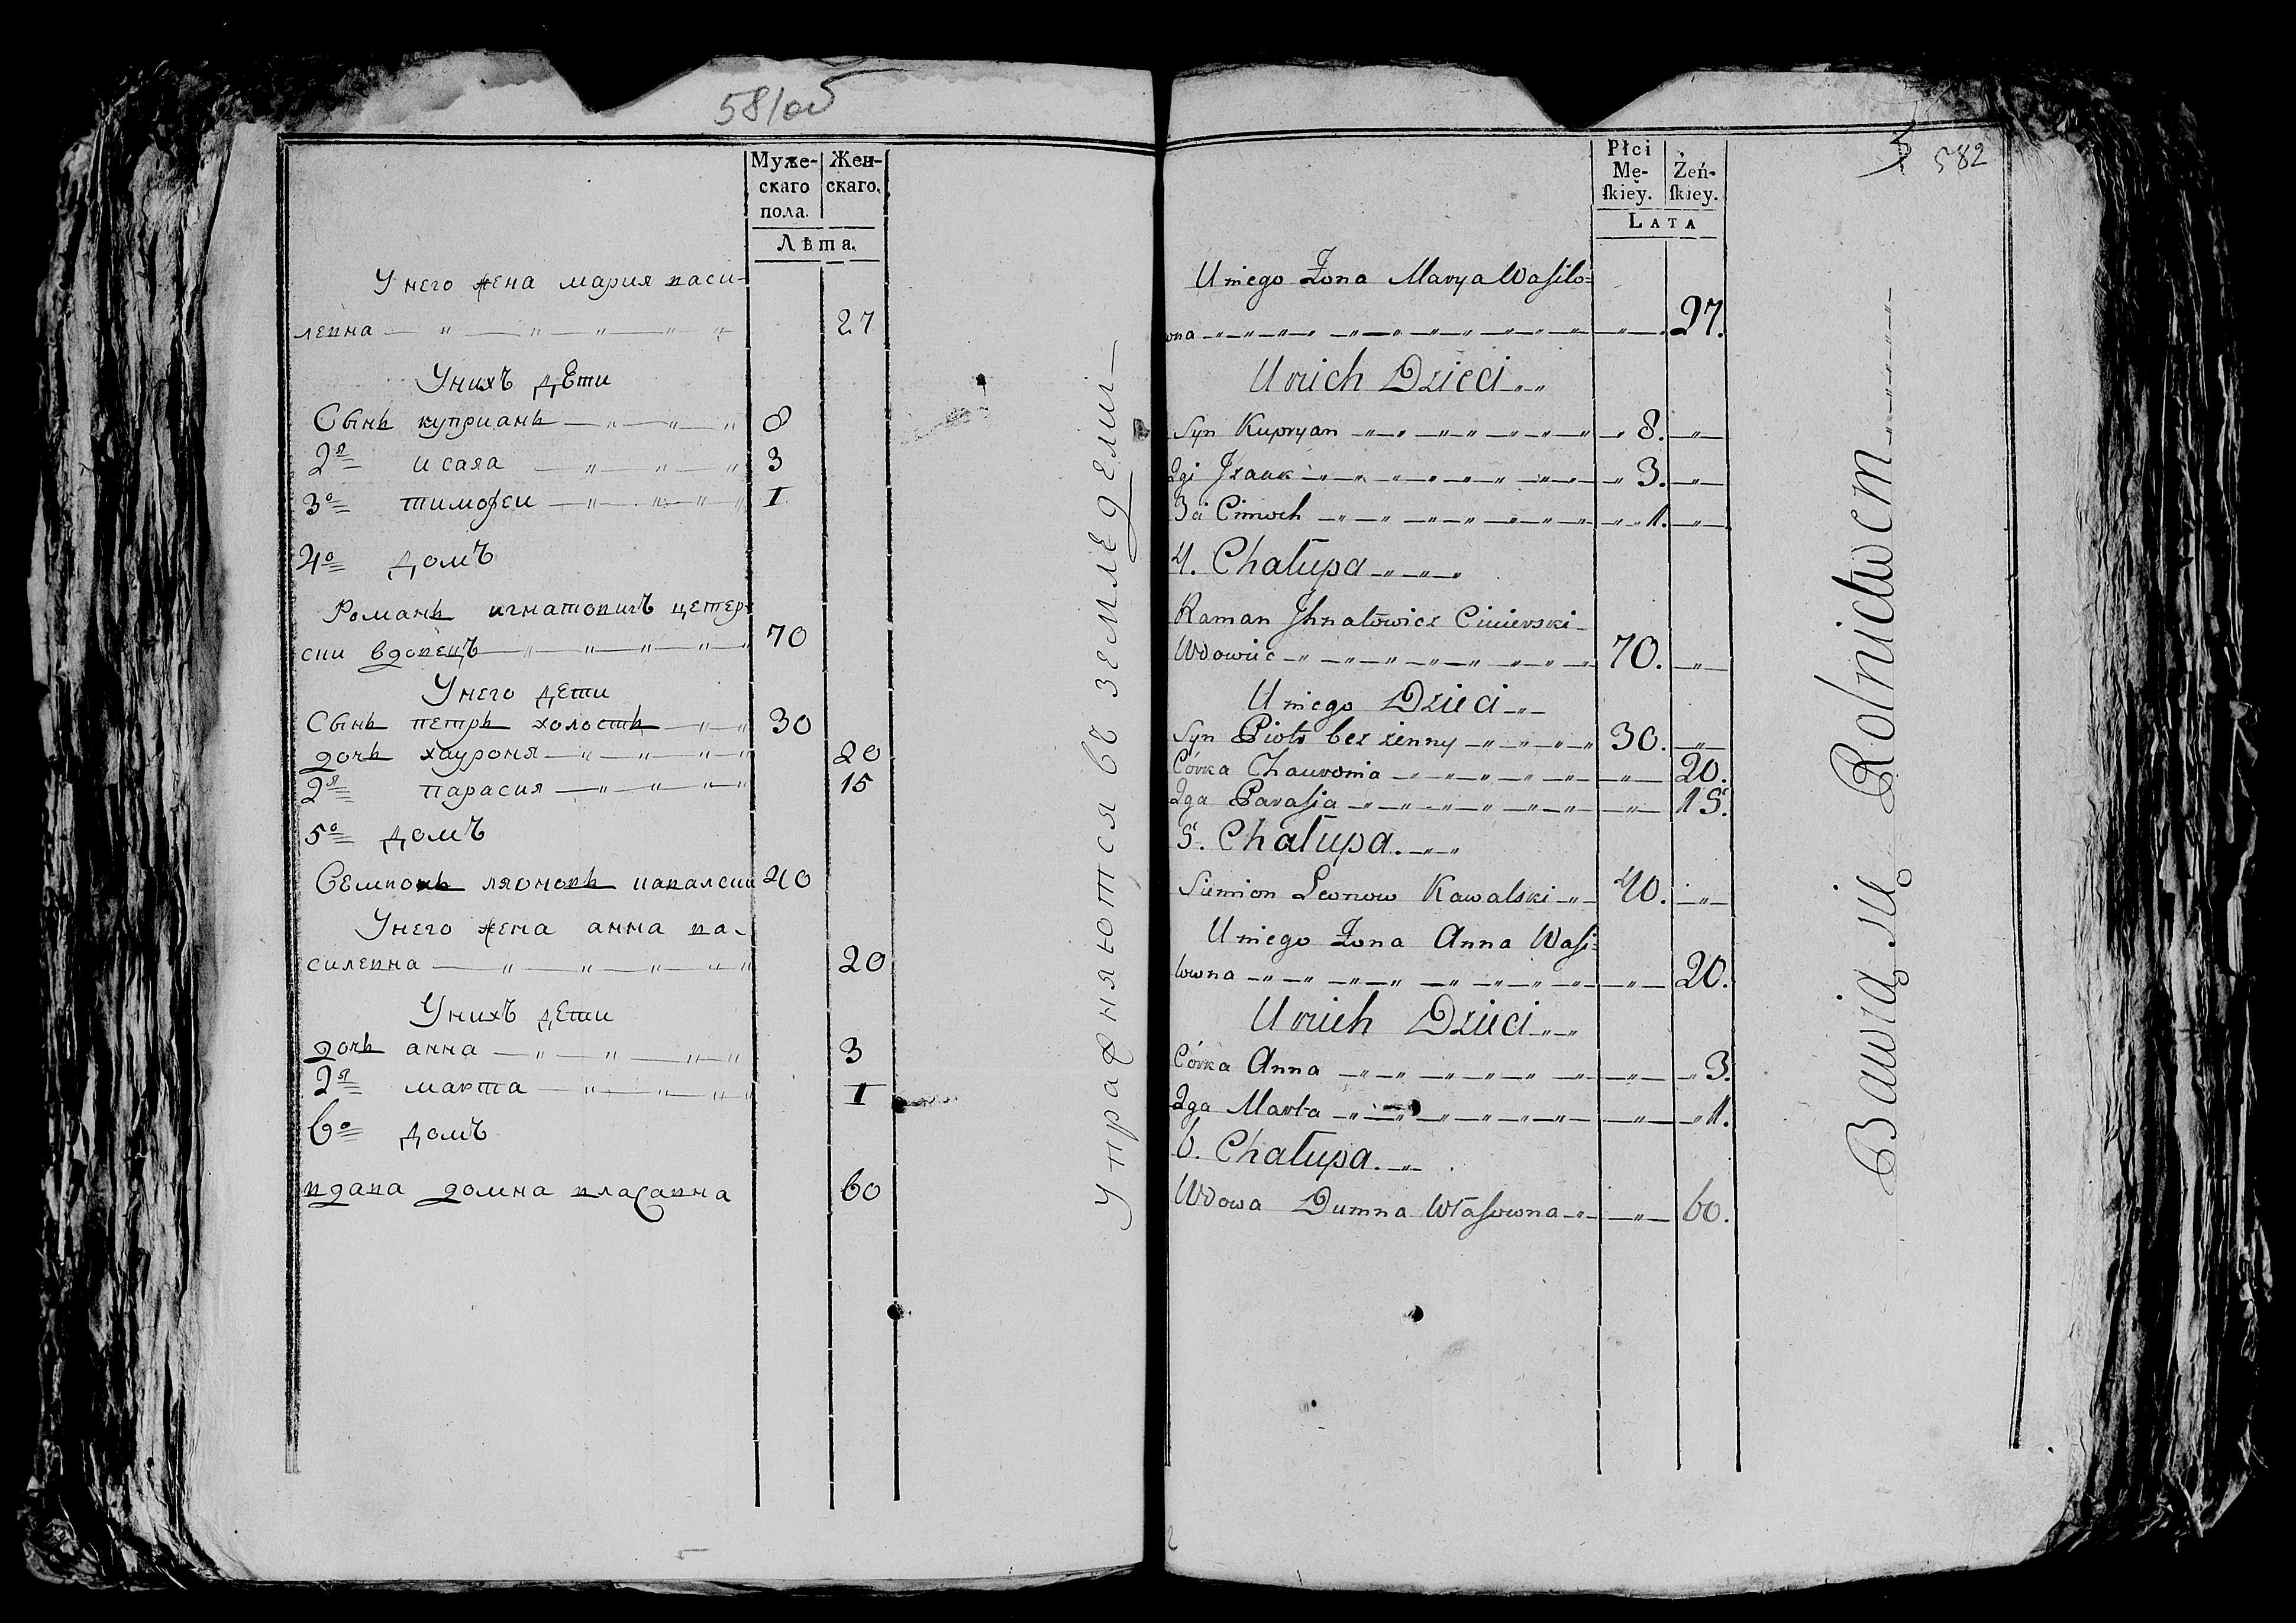 581об
Муже-
скаго
пола.
Жен-
скаго.
Лѣта.
У него жена мария васи-
левна 27
У нихъ дѣти
Сынъ куприанъ 8
2я исаяа 3
3о тимофеи 1
4о домъ
Романъ игнатовичъ цетер-
ски вдовецъ 70
У него дѣти
Сынъ петръ холостъ 30
дочь хауроня 20
2я парасия 15
5о домъ
Семионъ ляоновъ кавалски 40
У него жена анна ва-
силевна 20
У нихъ дѣти
дочь анна 3
2я марта 1
6о домъ
вдава домна власавна 60
Упражняются въ земледелии
582
Płci
Mę-
ſkiey.
Żeń-
ſkiey.
LATA
U niego Żona Marya Waſilo=
wna 27.
U nich Dzieci
Syn Kupryan 8.
2gi Izaak 3.
3ci Cimoch 1.
4. Chałupa
Raman Jhnatowicz Cicierski
Wdowiec 70.
U niego Dzieci
Syn Piotr bez żenny 30.
Córka Chauronia 20.
2ga Paraſia 15.
5. Chałupa.
Siemion Leonow Kawalski 40.
U niego Żona Anna Waſi=
lowna 20.
U nich Dzieci
Córka Anna 3.
2ga Marta 1.
6. Chałupa.
Wdowa Dumna Właſowna 60.
Bawią się Rolnictwem